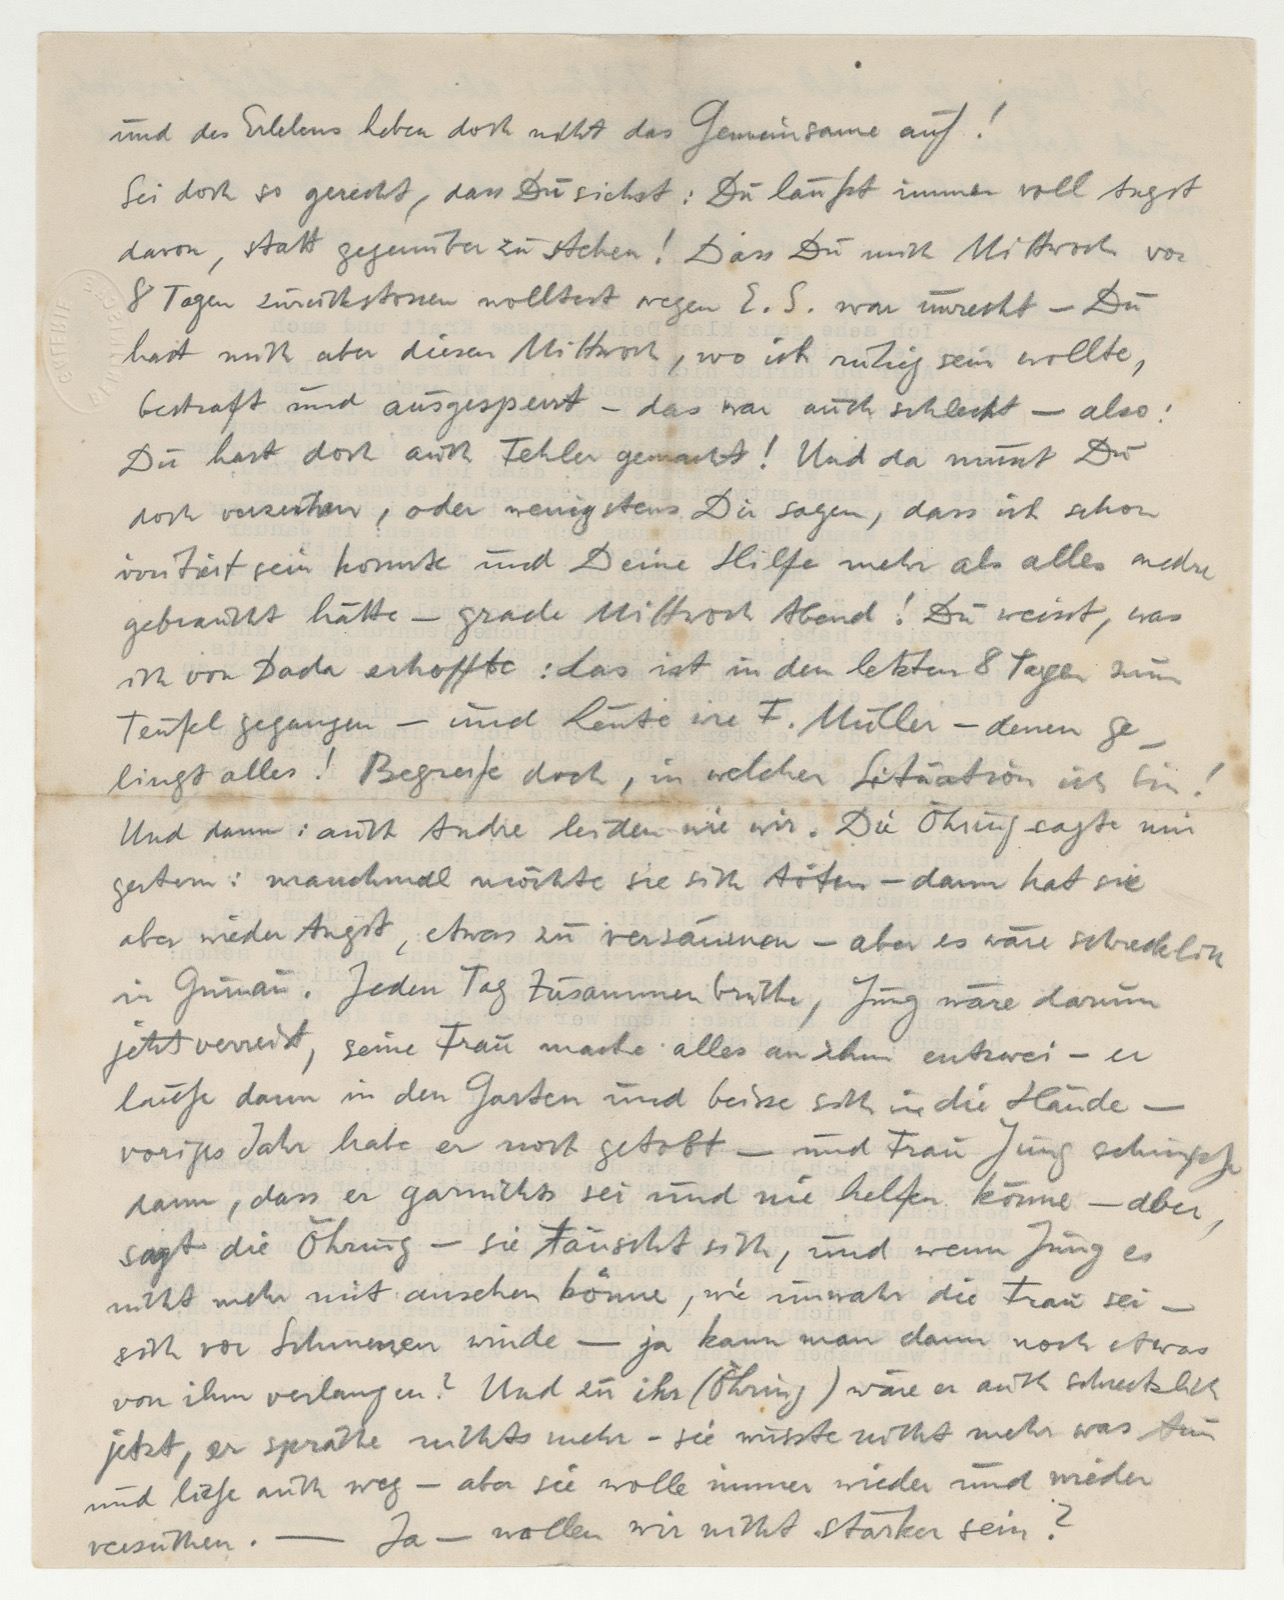 und des Erlebens heben doch nicht das Gemeinsame auf!
Sei doch so gerecht, dass Du siehst: Du läufst immer voll Angst
davon, statt gegenüber zu stehen! Dass Du mich Mittwoch vor
8 Tagen zurückstossen wolltest wegen E. S. war unrecht – Du
hast mich aber diesen Mittwoch, wo ich ruhig sein wollte,
bestraft und ausgesperrt – das war auch schlecht – also:
Du hast doch auch Fehler gemacht! Und da musst Du
doch verzeihen, oder wenigstens Dir sagen, dass ich schon
sein konnte und Deine Hilfe mehr als alles andre
gebraucht hätte – grade Mittwoch Abend! Du weisst, was
ich von Dada erhoffte: das ist in den letzten 8 Tagen zum
Teufel gegangen – und heute F. Müller – denen ge_
lingt alles! Begreife doch, in welcher Situation ich bin!
Und dann: auch Andre leiden wie wir. Die Öhring sagte mir
gestern: manchmal möchte sie sich töten – dann hat sie
aber wieder Angst, etwas zu versäumen – aber es wäre schrecklich
in Grünau. Jeden Tag Zusammenbrüche, Jung wäre darum
jetzt verreist, seine Frau mache alles an ihm entzwei – er
laufe dann in den Garten und beisse sich in die Hände –
voriges Jahr habe er noch getobt – und Frau Jung schimpfe
dann, dass er garnichts sei und nie helfen könne – aber,
sagt die Öhring – sie täuscht sich, und wenn Jung es
nicht mehr mit ansehen könne, wie unwahr die Frau sei –
sich vor Schmerzen winde – ja kann man dann noch etwas
von ihm verlangen? Und zu ihr (Öhring) wäre er auch schrecklich
jetzt, er spräche nichts mehr – sie wusste nicht mehr was tun
und liefe auch weg – aber sie wolle immer wieder und wieder
versuchen. — Ja – wollen wir nicht stärker sein?